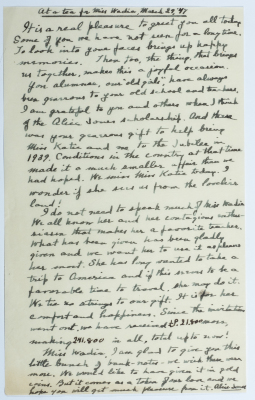 At a tea for Miss Wadia, March 29, '47
It is a real pleasure to greet you all today.
Some of you we have not seen for a long time.
To look into your faces brings up happy
memories. Then too, the thing that brings
us together, makes this a joyful occasion.
You alumnae, our old girls, have always
been generous to your old school and teachers.
I am grateful to you and others when I think
of the Alice Jones scholarship. And there
was your generous gift to help bring
Miss Katie and me to the Jubilee in
1939. Conditions in the country at that time
made it a much smaller affair than we
had hoped. We miss Miss Katie today. I
wonder if she sees us from the Loveliest
land!
I do not need to speak much of Miss Wadia
We all know her and her contagious enthu-
siasm that makes her a favorite teacher.
What has been given has been gladly
given and we want her to use it as pleases
her most. She has long wanted to take a
trip to America and if this seems to be a
favorable time to travel, she may do it.
We tie no strings to our gift. It is for her
comfort and happiness. Since the invitations
went out, we have received more,
making in all, total up to now!
Miss Wadia, I am glad to give you this
little bunch of bank-notes; we wish there were
more. We would like to have given it in gold
coins. But it comes as a token of our love and we
hope you will get much pleasure from it. Alice Jones